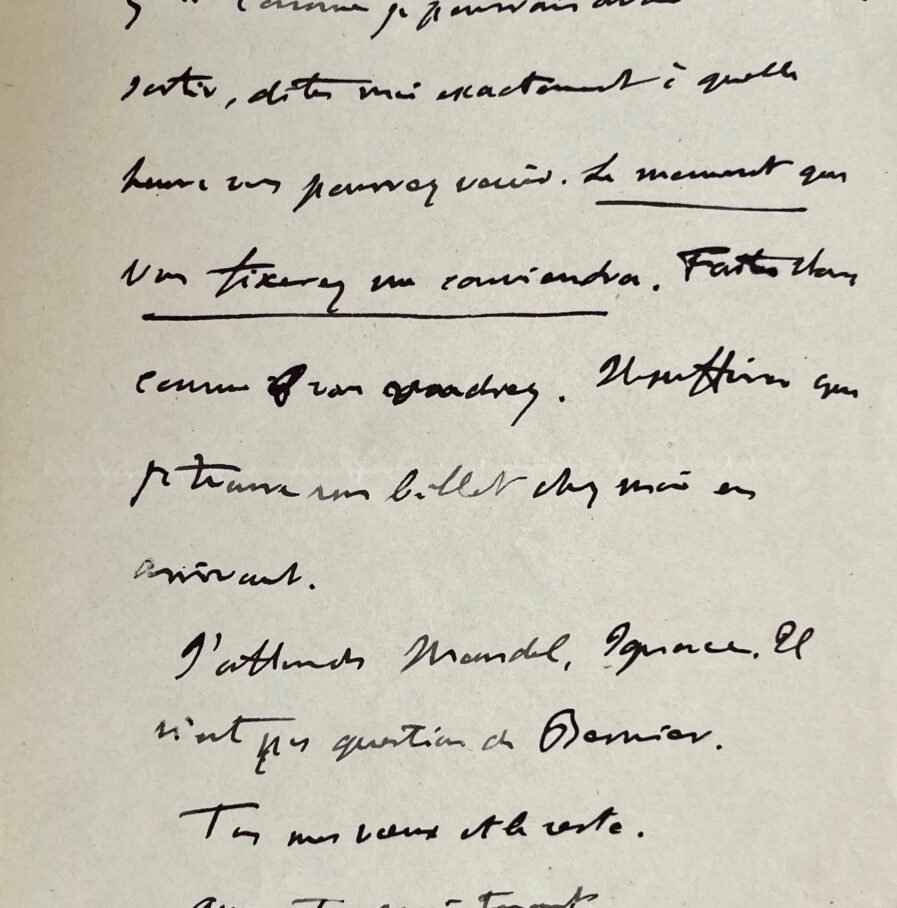 comme je pourrais
sortir, dites moi exactement à quelle
heure vous pourrez venir. Le moment que
vous fixerez me conviendra. Faites donc
comme vous voudrez. Il suffira que
je trouve un billet chez moi en
arrivant.
J'attends Mandel, Ignace. Il
n'est pas question de Bernier.
Tous mes vœux et le reste.